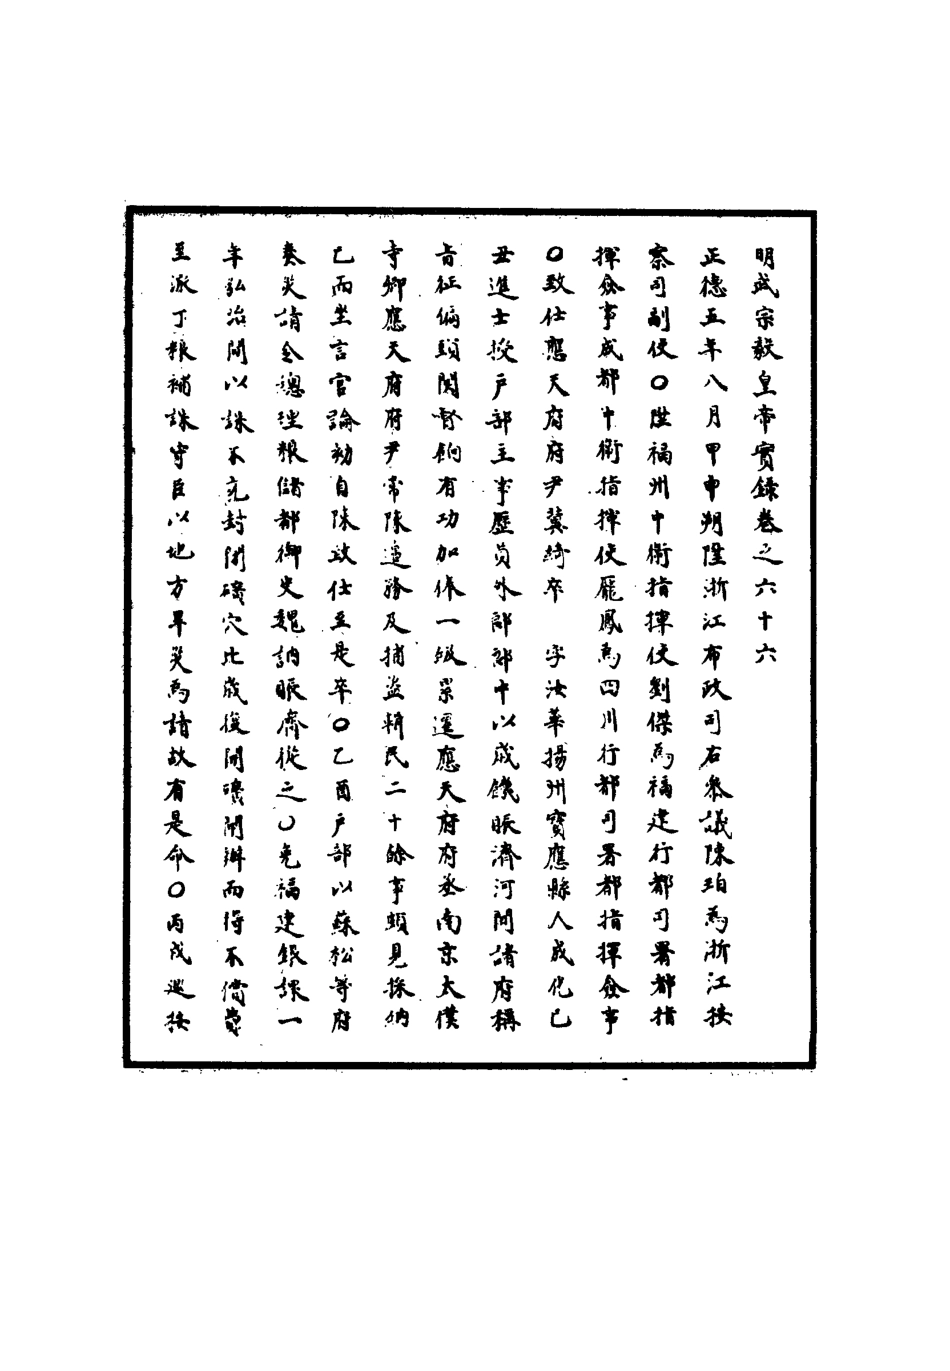 明武宗毅皇帝實錄卷之六十六
正德五年八月甲申朔陞浙江布政司右叅議陳珀為浙江按
察司副使○陞福州中衛指揮使劉傑為福建行都司署都指
揮僉事成都中衛指揮使龐鳳為四川行都司署都指揮僉事
○致仕應天府府尹冀綺卒 字汝華揚州寶應縣人成化己
丑進士授戶部主事歷員外郎郎中以歲饑賑濟河間諸府稱
旨征偏頭関督餉有功加俸一級累遷應天府府丞南京太僕
寺卿應天府府尹常陳邊務及捕盜耕民二十餘事頗見採納
已而坐言官論劾自陳致仕至是卒○乙酉戶部以蘇松等府
奏災請令總理粮儲都御史魏訥賑齊從之○免福建銀課一
年弘治間以課不充封閉礦穴比歲復開礦開辦而得不償費
至派丁粮補課守臣以地方旱災為請故有是命○丙戌巡按